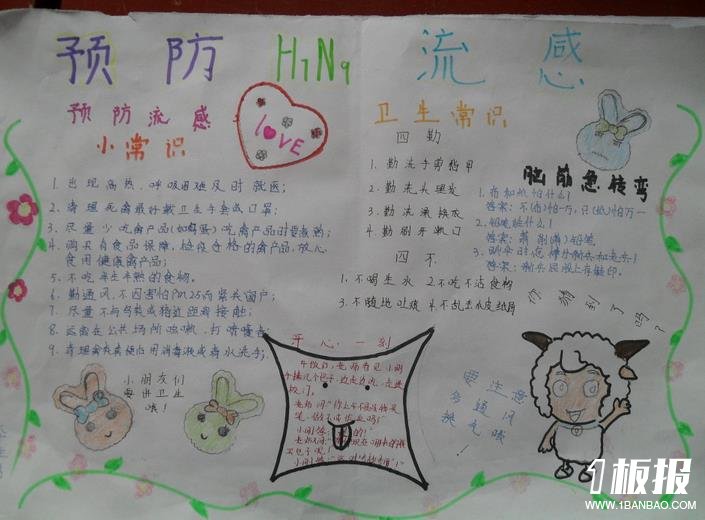 预防 H7N9 流感
预防流感
小常识
LOVE
1. 出现高热、呼吸困难及时就医;
2. 清理死禽最好戴卫生手套或口罩;
3. 尽量少吃禽产品(如鸡蛋)吃禽产品时要煮熟;
4. 购买有食品保障、检疫合格的禽产品,放心
食用健康禽产品;
5. 不吃半生半熟的食物。
6. 勤通风、不因害怕PM2.5而紧关窗户;
7. 尽量不与鸟类或猪近距离接触;
8. 远离在公共场所咳嗽、打喷嚏者;
9. 清理禽类粪便用消毒液或香水洗手;
小朋友们
要讲卫生
哦!
卫生常识
四勤
1. 勤洗手剪指甲
2. 勤洗头理发
3. 勤洗澡换衣
4. 勤刷牙漱口
四不
1. 不喝生水 2. 不吃不洁食物
3. 不随地吐痰 4. 不乱丢水皮纸屑
脑筋急转弯
1. 布和纸怕什么!
答案: 不(布)怕一万,只(纸)怕万一
2. 铅笔姓什么!
答案: 萧 削(萧)铅笔
你猜到了吗?
开心一刻
要注意
多通风
换气哦!
1板报
WWW.1BANBAO.COM